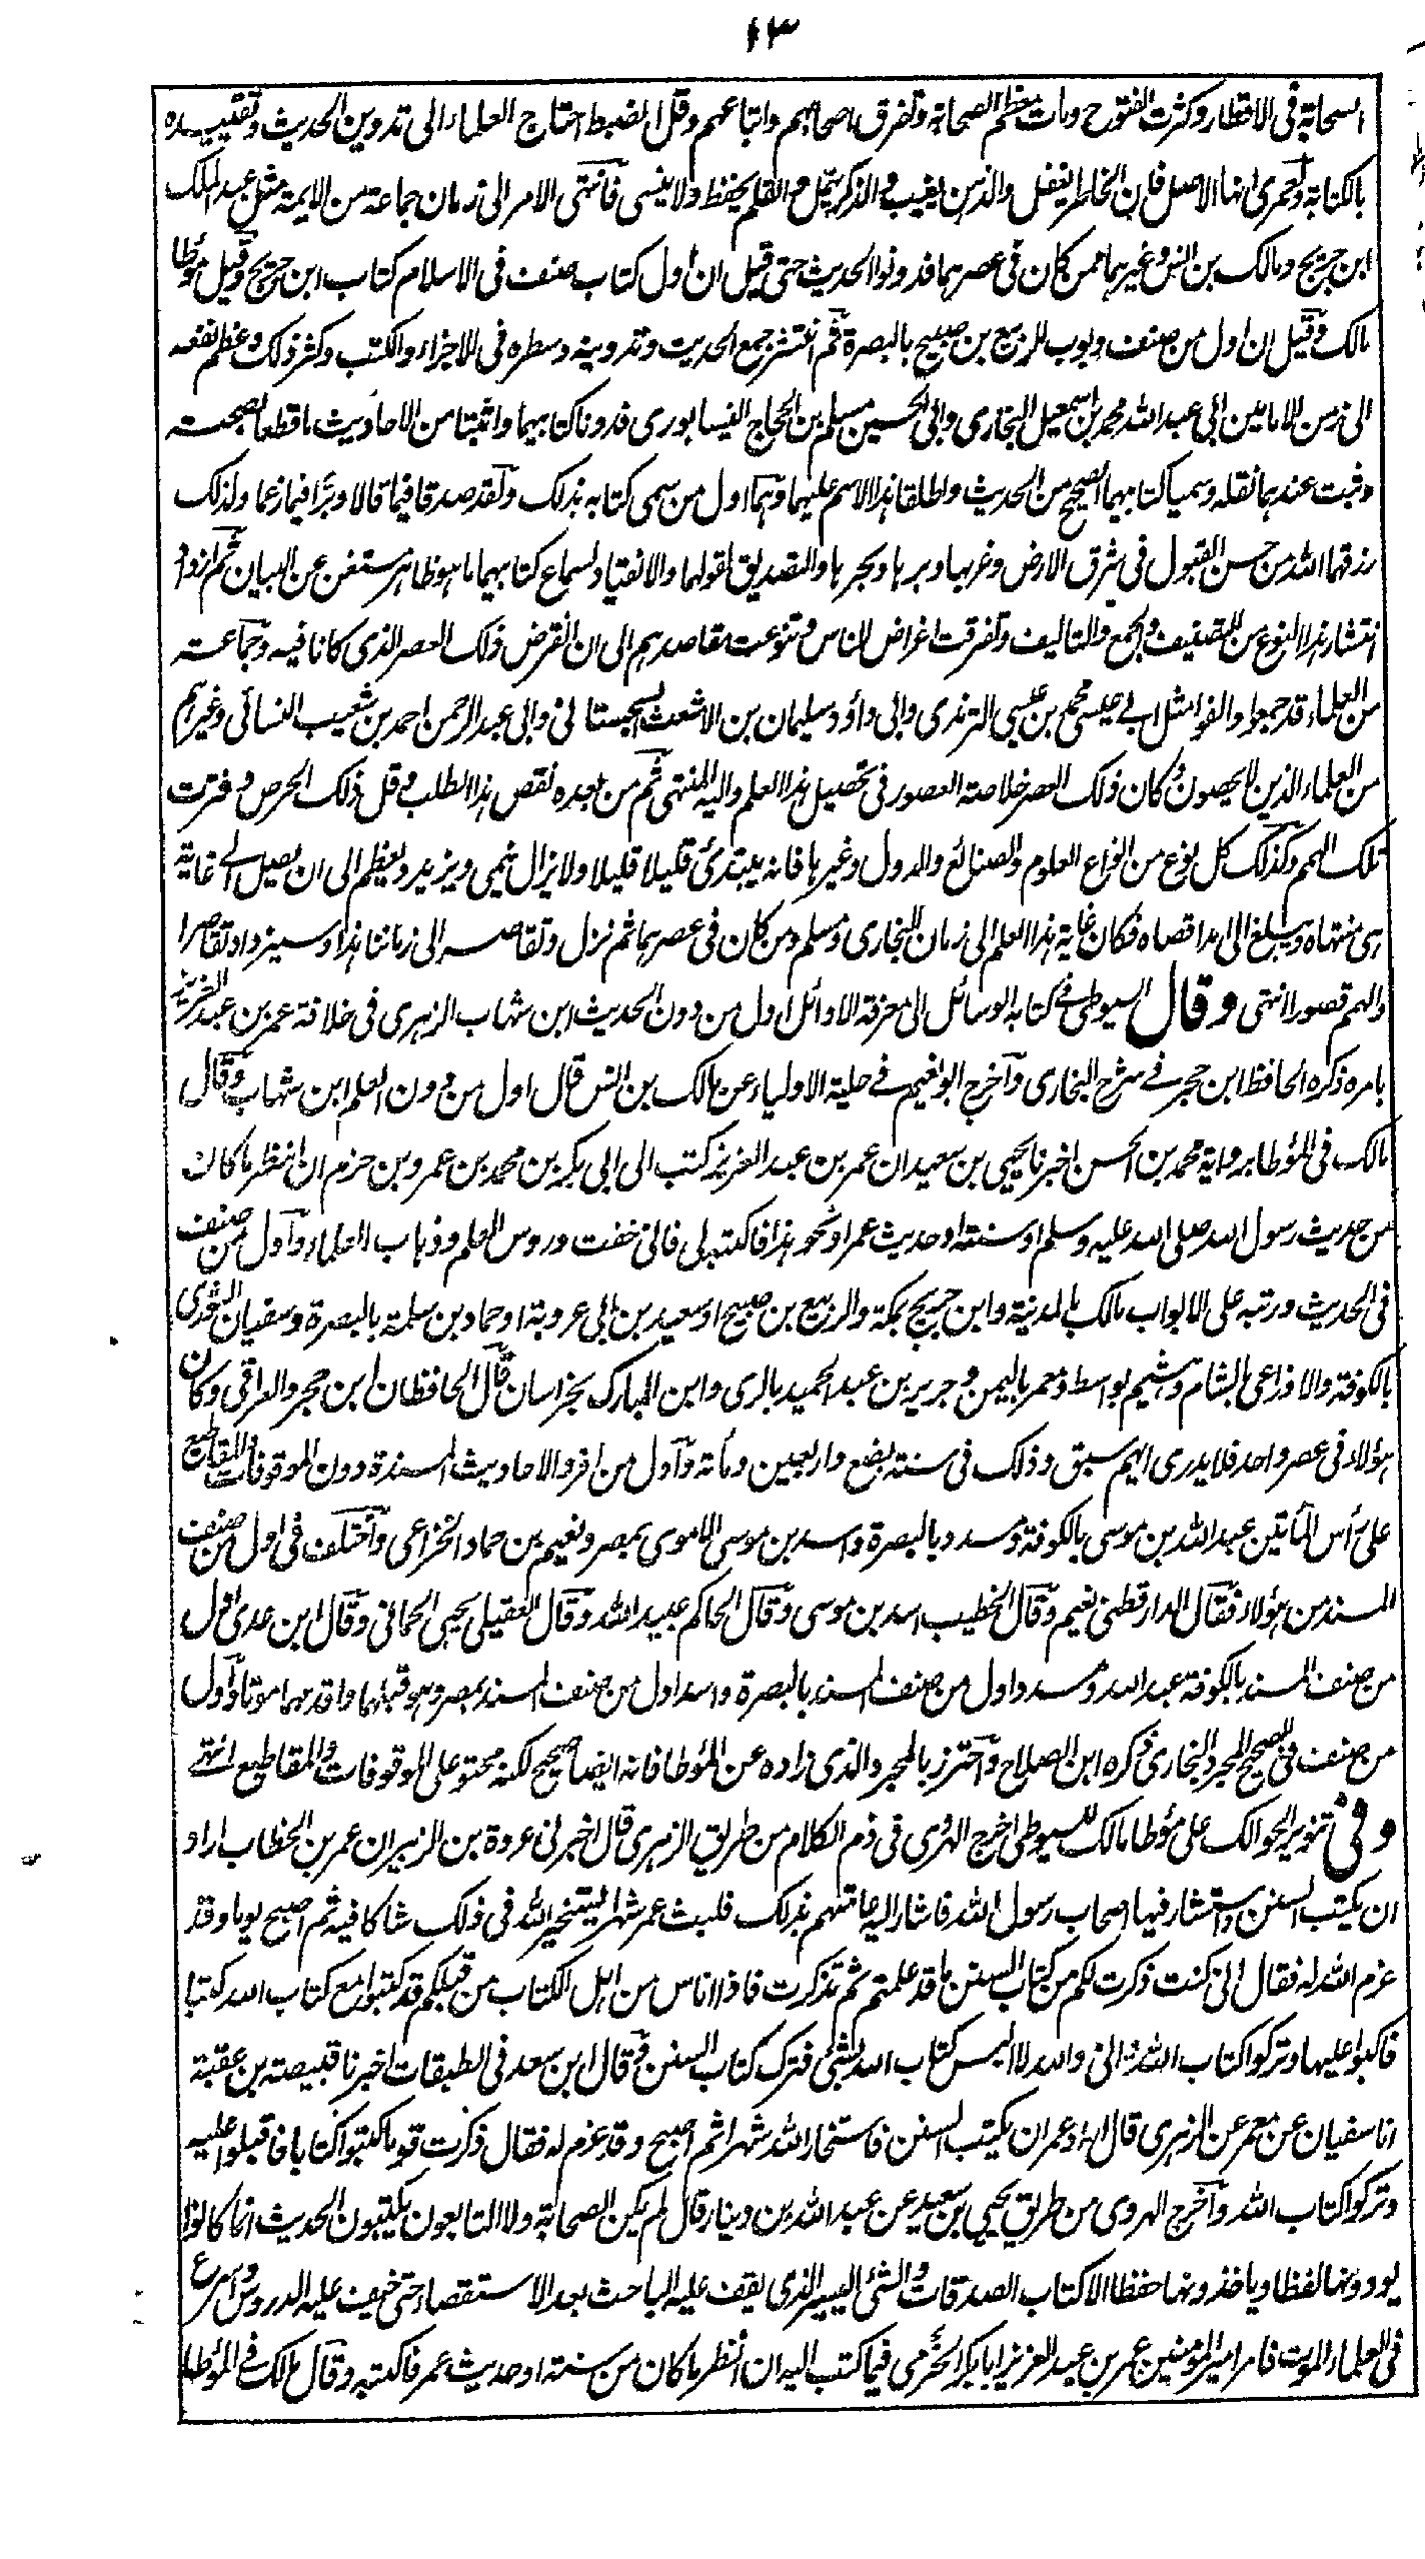 ١٣
الصحابة فى الاقطار وكثرت الفتوح ومات معظم الصحابة وتفرق اصحابهم واتباعهم وقل الضبط احتاج العلماء الى تدوين الحديث وتقييده
بالكتابة ولعمرى انها الاصل فان الخاطر يغفل والذهن يغيب والذكر يهمل والقلم يحفظ ولا ينسى فانتهى الامر الى زمان جماعة من الايمة مثل عبد الملك
ابن جريج ومالك بن انس وغيرهما ممن كان فى عصرهما فدونوا الحديث حتى قيل ان اول كتاب صنف فى الاسلام كتاب ابن جريج وقيل موطا
مالك وقيل ان اول من صنف وبوب الربيع بن صبيح بالبصرة ثم انتشر جمع الحديث وتدوينه وسطره فى الاجزاء والكتب وكثر ذلك وعظم نفعه
الى زمن الامامين ابى عبد الله محمد بن اسمعيل البخارى وابى الحسين مسلم بن الحجاج النيسابورى فدونا كتابيهما واثبتا من الاحاديث ما قطعا بصحته
وثبت عندهما نقله وسميا كتابيهما الصحيح من الحديث واطلقا هذا الاسم عليهما وهما اول من سمى كتابه بذلك ولقد صدقا فيما قالا وبرا فيما زعما ولذلك
رزقهما الله من حسن القبول فى شرق الارض وغربها وبرها وبحرها والتصديق لقولهما والانقياد لسماع كتابيهما ما هو ظاهر مستغن عن البيان ثم ازداد
انتشار هذا النوع من التصنيف والجمع والتاليف وتفرقت اغراض الناس وتنوعت مقاصدهم الى ان انقرض ذلك العصر الذى كانا فيه وجماعته
من العلماء قد جمعوا والفوا مثل ابى عيسى محمد بن عيسى الترمذى وابى داؤد سليمان بن الاشعث السجستانى وابى عبد الرحمن احمد بن شعيب النسائى وغيرهم
من العلماء الذين لا يحصون وكان ذلك العصر خلاصة العصور فى تحصيل هذا العلم واليه المنتهى ثم من بعده نقص هذا الطلب وقل ذلك الحرص وفترت
تلك الهمم وكذلك كل نوع من انواع العلوم والصنائع والدول وغيرها فانه يبتدئ قليلا قليلا ولا يزال ينمى ويزيد ويعظم الى ان يصل الى غاية
هى منتهاه ويبلغ الى امد اقصاه فكان غاية هذا العلم الى زمان البخارى ومسلم ومن كان فى عصرهما ثم نزل وتقاصر الى زماننا هذا وسيزداد تقاصرا
والهمم قصورا انتهى وقال السيوطى فى كتابه الوسائل الى معرفة الاوائل اول من دون الحديث ابن شهاب الزهرى فى خلافة عمر بن عبد العزيز
بامره ذكره الحافظ ابن حجر فى شرح البخارى وآخرج ابو نعيم فى حلية الاولياء عن مالك بن انس قال اول من دون العلم ابن شهاب وقال
مالك فى المؤطا برواية محمد بن الحسن اخبرنا يحيى بن سعيد ان عمر بن عبد العزيز كتب الى ابى بكر بن محمد بن عمرو بن حزم ان انظر ما كان
من حديث رسول الله صلى الله عليه وسلم او سنته او حديث عمر او نحو هذا فاكتبه لى فانى خفت دروس العلم وذهاب العلماء وآول من صنف
فى الحديث ورتبه على الابواب مالك بالمدينة وابن جريج بمكة والربيع بن صبيح او سعيد بن ابى عروبة او حماد بن سلمة بالبصرة وسفيان الثورى
بالكوفة والاوزاعى بالشام وهشيم بواسط ومعمر باليمن وجرير بن عبد الحميد بالرى وابن المبارك بخراسان قال الحافظان ابن حجر والعراقى وكان
هؤلاء فى عصر واحد فلا يدرى ايهم سبق وذلك فى سنة بضع واربعين ومأة وآول من افرد الاحاديث المسندة دون الموقوفات والمقاطيع
على رأس المأتين عبد الله بن موسى بالكوفة ومسدد بالبصرة واسد بن موسى الاموى بمصر ونعيم بن حماد الخزاعى وآختلف فى اول من صنف
المسند من هؤلاء فقال الدارقطنى نعيم وقال الخطيب اسد بن موسى وقال الحاكم عبيد الله وقال العقيلى يحيى الحمانى وقال ابن عدى اول
من صنف المسند بالكوفة عبد الله ومسدد اول من صنف المسند بالبصرة واسد اول من صنف المسند بمصر وهو قبلهما واقدمهما موتا وآول
من صنف فى الصحيح المجرد البخارى ذكره ابن الصلاح وآحترز بالمجرد الذى زاده عن المؤطا فانه ايضا صحيح لكنه محتو على الموقوفات والمقاطيع انتهى
وفى تنوير الحوالك على مؤطا مالك للسيوطى اخرج الهروى فى ذم الكلام من طريق الزهرى قال اخبرنى عروة بن الزبير ان عمر بن الخطاب اراد
ان يكتب السنن واستشار فيها اصحاب رسول الله فاشار اليه عامتهم بذلك فلبث عمر شهرا يستخير الله فى ذلك شاكا فيه ثم اصبح يوما وقد
عزم الله له فقال انى كنت ذكرت لكم من كتاب السنن ما قد علمتم ثم تذكرت فاذا اناس من اهل الكتاب من قبلكم قد كتبوا مع كتاب الله كتبا
فاكبوا عليها وتركوا كتاب الله وانى والله لا البس كتاب الله بشئ فترك كتاب السنن وقال ابن سعد فى الطبقات اخبرنا قبيصة بن عقبة
انا سفيان عن معمر عن الزهرى قال اراد عمر ان يكتب السنن فاستخار الله شهرا ثم اصبح وقد عزم له فقال ذكرت قوما كتبوا كتابا فاقبلوا عليه
وتركوا كتاب الله وآخرج الهروى من طريق يحيى بن سعيد عن عبد الله بن دينار قال لم يكن الصحابة ولا التابعون يكتبون الحديث انما كانوا
يودونها لفظا وياخذونها حفظا الا كتاب الصدقات والشئ اليسير الذى يقف عليه الباحث بعد الاستقصاء حتى خيف عليه الدروس واسرع
فى العلماء الموت فامر امير المؤمنين عمر بن عبد العزيز ابا بكر الحزمى فيما كتب اليه ان انظر ما كان من سنة او حديث عمر فاكتبه وقال مالك فى المؤطا